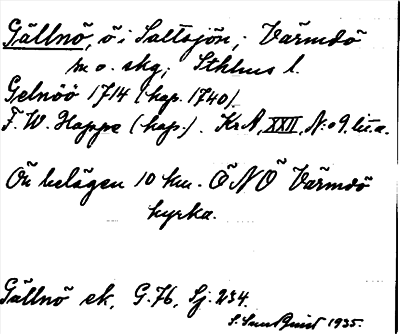 Gällnö, ö i Saltsjön; Värmdö
m o. skg; Sthlms l.
Gelnöö 1714 (kop. 1740).
F. W. Hoppe (kop.). KrA, XXII, N:o 9. lit. a.
Ön belägen 10 km. ÖNÖ Värmdö
kyrka.
Gällnö ek. G. 76, Sj. 234.
S. Sundquist 1935.